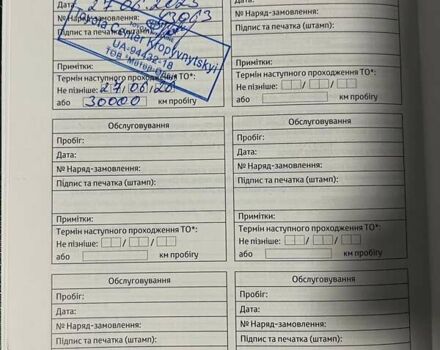 27.06.2023
№ Наряд-замовлення:
Підпис та печатка
Toyota Center Kropyvnytskyi
UA-94432-18
Примітки:
Термін наступного проходження ТО*:
Не пізніше: 27/06/
або 30000 км пробігу
№ Наряд-замовлення:
Підпис та печатка (штамп):
Примітки:
Термін наступного проходження ТО*:
Не пізніше: / /
або км пробігу
Обслуговування
Пробіг:
Дата:
№ Наряд-замовлення:
Підпис та печатка (штамп):
Примітки:
Термін наступного проходження ТО*:
Не пізніше: / /
або км пробігу
Обслуговування
Пробіг:
Дата:
№ Наряд-замовлення:
Підпис та печатка (штамп):
Примітки:
Термін наступного проходження ТО*:
Не пізніше: / /
або км пробігу
Обслуговування
Пробіг:
Дата:
№ Наряд-замовлення:
Підпис та печатка (штамп):
Обслуговування
Пробіг:
Дата:
№ Наряд-замовлення:
Підпис та печатка (штамп):